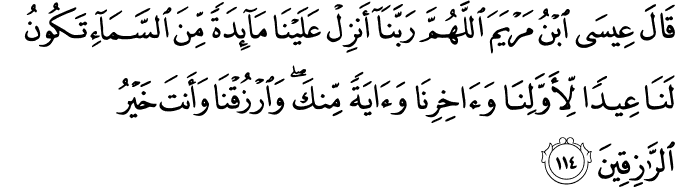 قَالَ عِيسَى ٱبۡنُ مَرۡيَمَ ٱللَّهُمَّ رَبَّنَآ أَنزِلۡ عَلَيۡنَا مَآئِدَةٗ مِّنَ ٱلسَّمَآءِ تَكُونُ
لَنَا عِيدٗا لِّأَوَّلِنَا وَءَاخِرِنَا وَءَايَةٗ مِّنكَۖ وَٱرۡزُقۡنَا وَأَنتَ خَيۡرُ
ٱلرَّٰزِقِينَ ١١٤